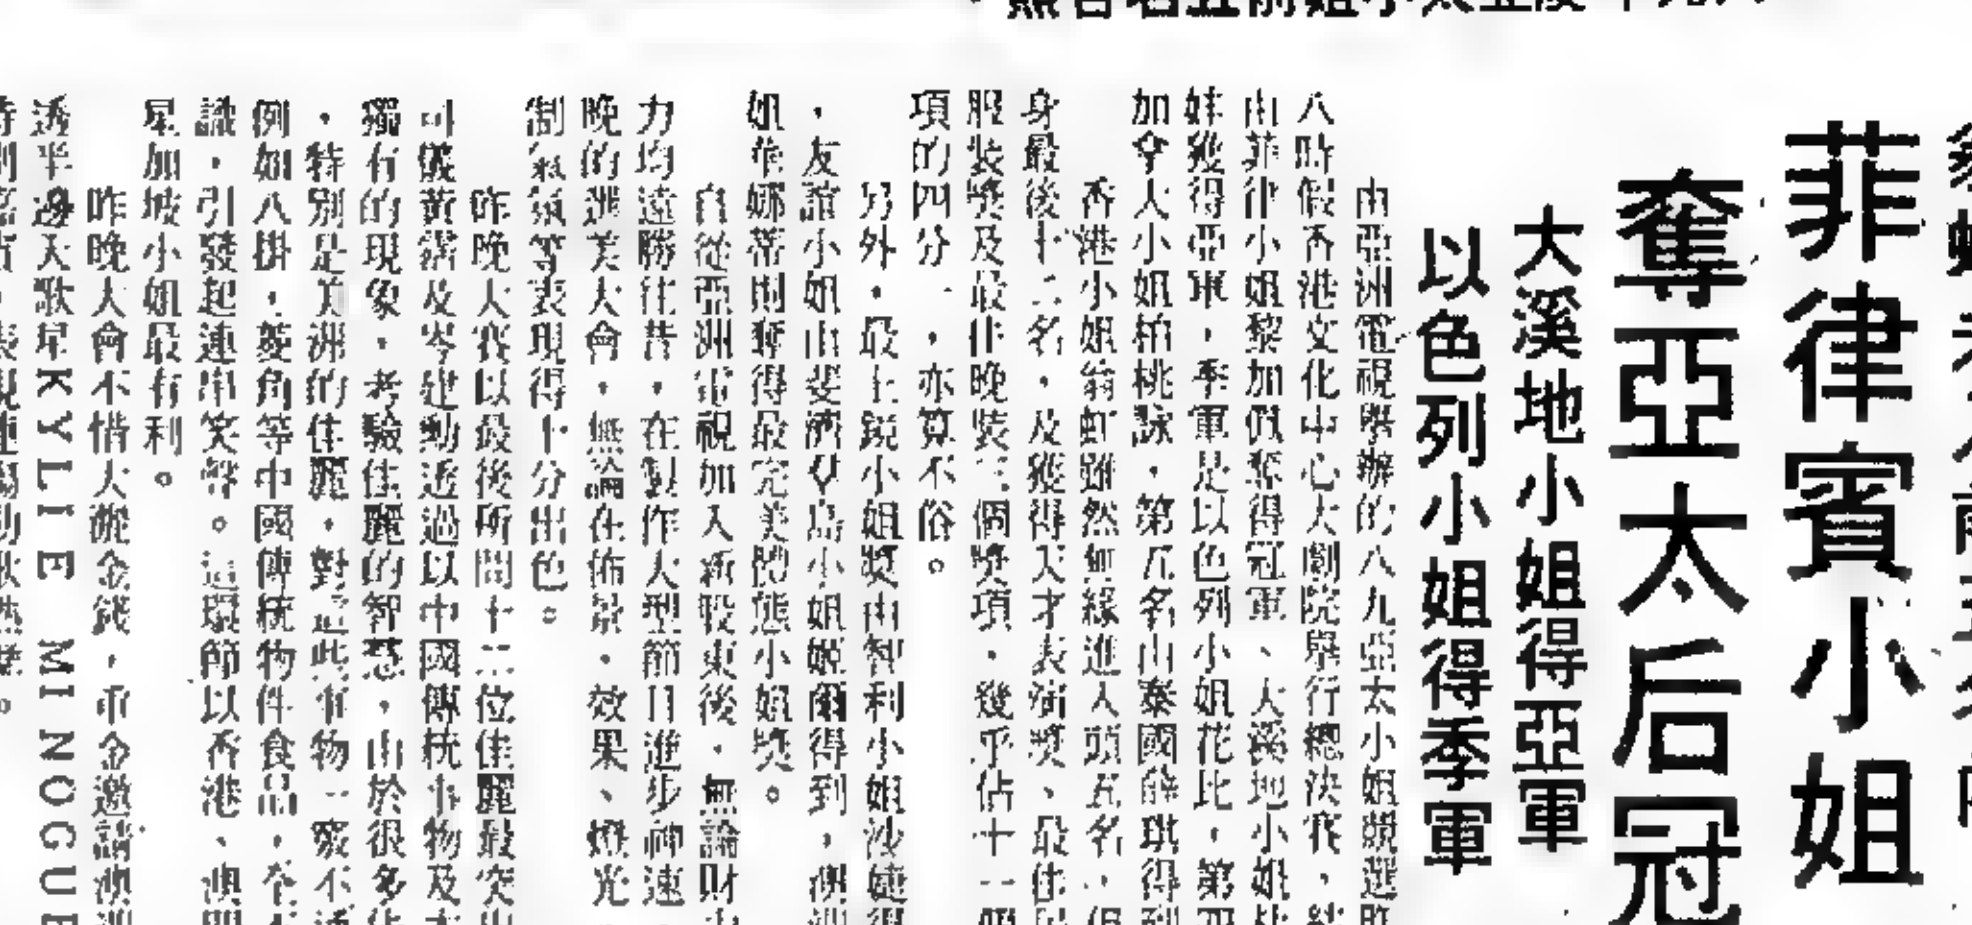 菲律賓小姐
奪亞太后冠
大溪地小姐得亞軍
以色列小姐得季軍
由亞洲電視舉辦的八九亞太小姐競選昨
八時假香港文化中心大劇院舉行總決賽,結
由菲律小姐黎加佩奪得冠軍、大溪地小姐
妹獲得亞軍,季軍是以色列小姐花比,第四
加拿大小姐柏桃詠,第五名由泰國薛琪得到
香港小姐翁虹雖然無緣進入頭五名,但
身最後十二名,及獲得天才表演獎、最佳民
服裝獎及最佳晚裝三個獎項,幾乎佔十一個
項的四分一,亦算不俗。
另外,最上鏡小姐獎由智利小姐沙婕得
,友誼小姐由斐濟島小姐姬爾得到,澳洲
姐蒂娜蒂則奪得最完美體態小姐獎。
自從亞洲電視加入新股東後,無論財力
力均遠勝往昔,在製作大型節目進步神速
晚的選美大會,無論在佈景,效果、燈光
制氣氛等表現得十分出色。
昨晚大賽以最後所問十二位佳麗最突出
司儀黃霑及岑建勳透過以中國傳統事物及
獨有的現象,考驗佳麗的智慧,由於很多佳
,特別是美洲的佳麗,對這些事物一竅不通
例如八掛,菱角等中國傳統物件食品,全不
識,引發起連串笑聲。這環節以香港、澳門
星加坡小姐最有利。
昨晚大會不惜大灑金錢,重金邀請澳洲
透半邊天歌星KYLIE MINOGUE